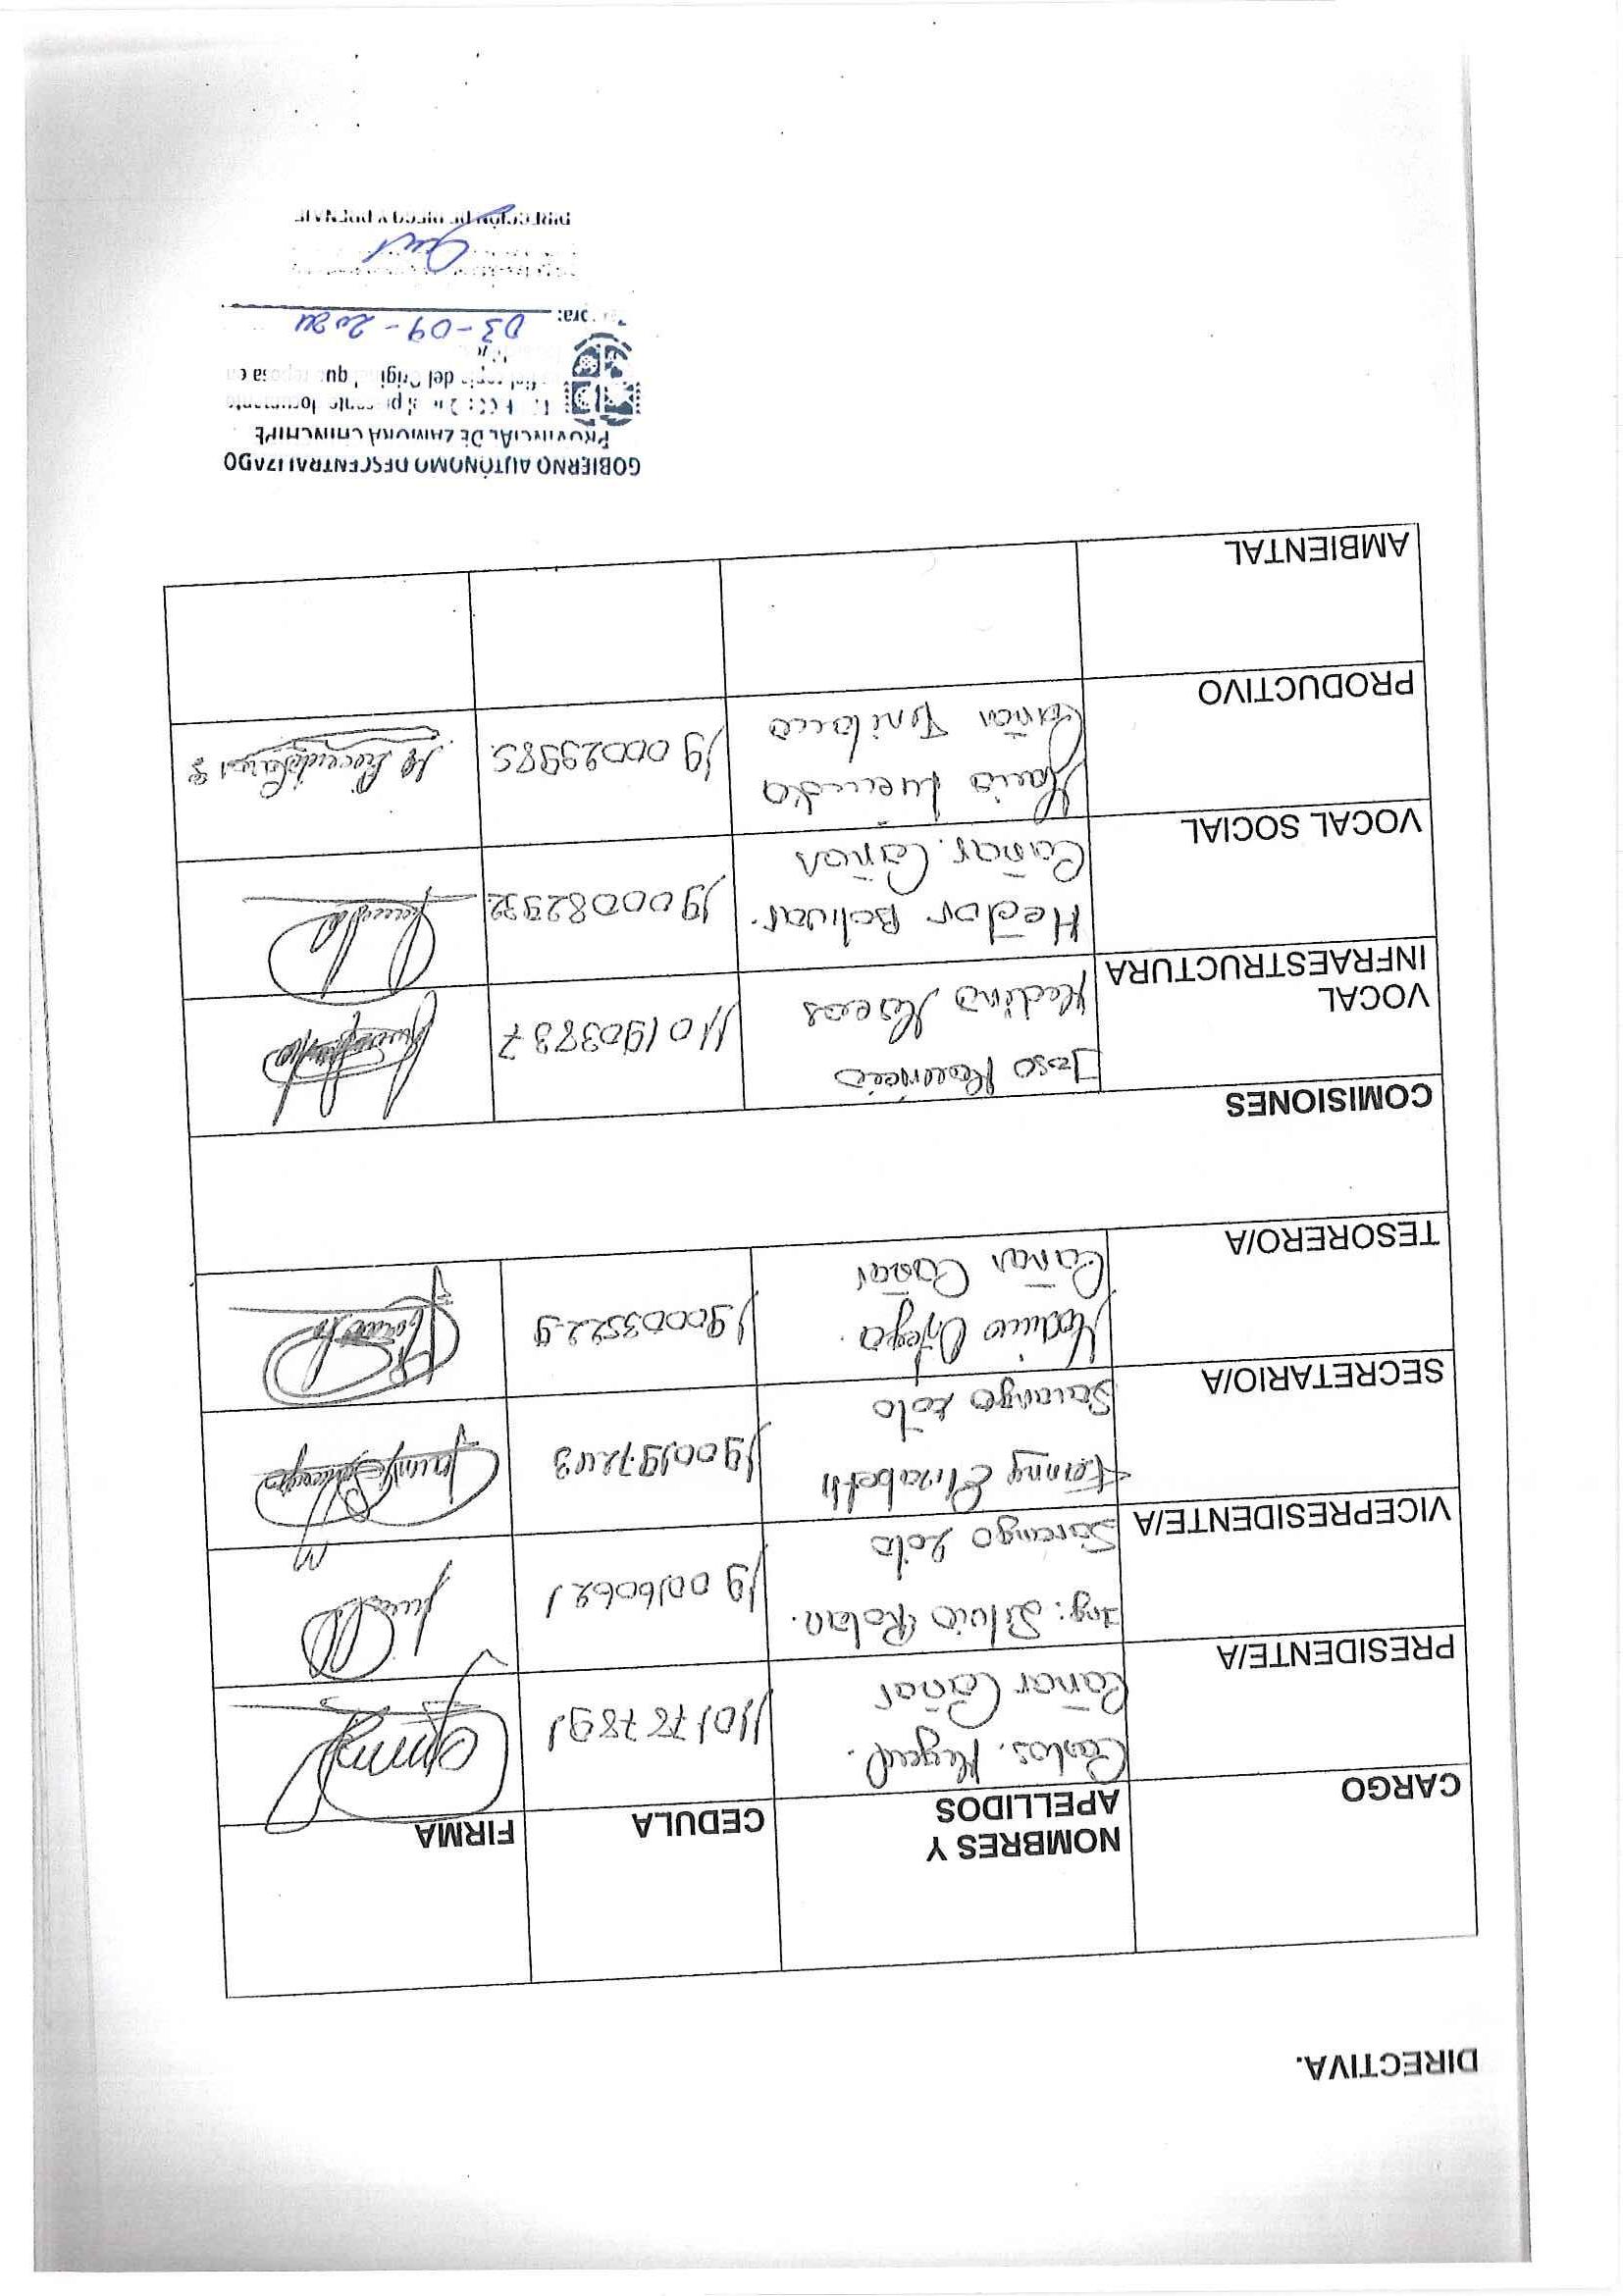 DIRECTIVA.
CARGO
NOMBRES Y
APELLIDOS
CEDULA
FIRMA
PRESIDENTE/A
Carlos. Miguel.
Cañar Cañar
1101787891
VICEPRESIDENTE/A
Ing: Silvio Rolan.
Sarango Soto
1900160621
SECRETARIO/A
Fanny Elizabeth
Sarango Soto
1900197243
TESORERO/A
Cañar Cañar
190003522-9
COMISIONES
VOCAL
INFRAESTRUCTURA
Jose
Medina
1101903837
VOCAL SOCIAL
Hector Bolivar.
Cañar. Cañar
1900082932
PRODUCTIVO
Maria
Cañar
1900029985
AMBIENTAL
GOBIERNO AUTÓNOMO DESCENTRALIZADO
PROVINCIAL DE ZAMORA CHINCHIPE
presente documento
copia del Original que reposa en
03-09-2024
DIRECCIÓN DE RIEGO Y DRENAJE